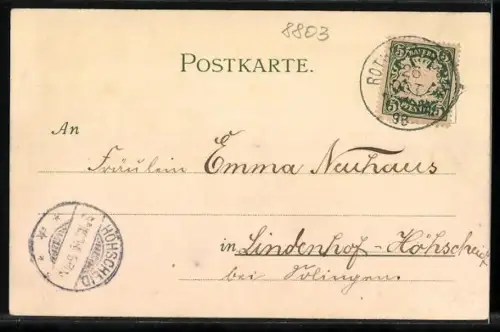 8803
POSTKARTE.
BAYERN
5 5
5 5
ROTH
26
7
98
An
Fräulein Emma Neuhaus
in Lindenhof-Höhscheid
bei Solingen
HÖHSCHEID